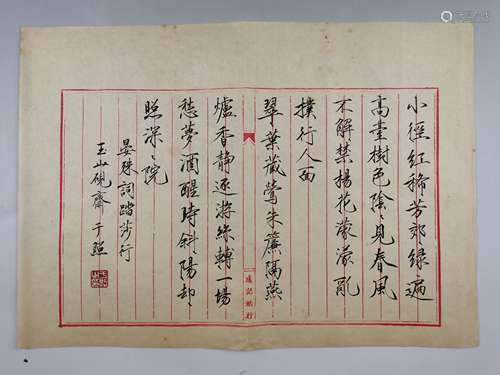 小徑紅稀芳郊綠遍
高臺樹色陰〻見春風
不解禁楊花濛濛亂
撲行人面
翠葉藏鶯朱簾隔燕
爐香靜逐游絲轉一場
愁夢酒醒時斜陽却〻
照深〻院
晏殊詞踏沙行
玉山硯齋于照